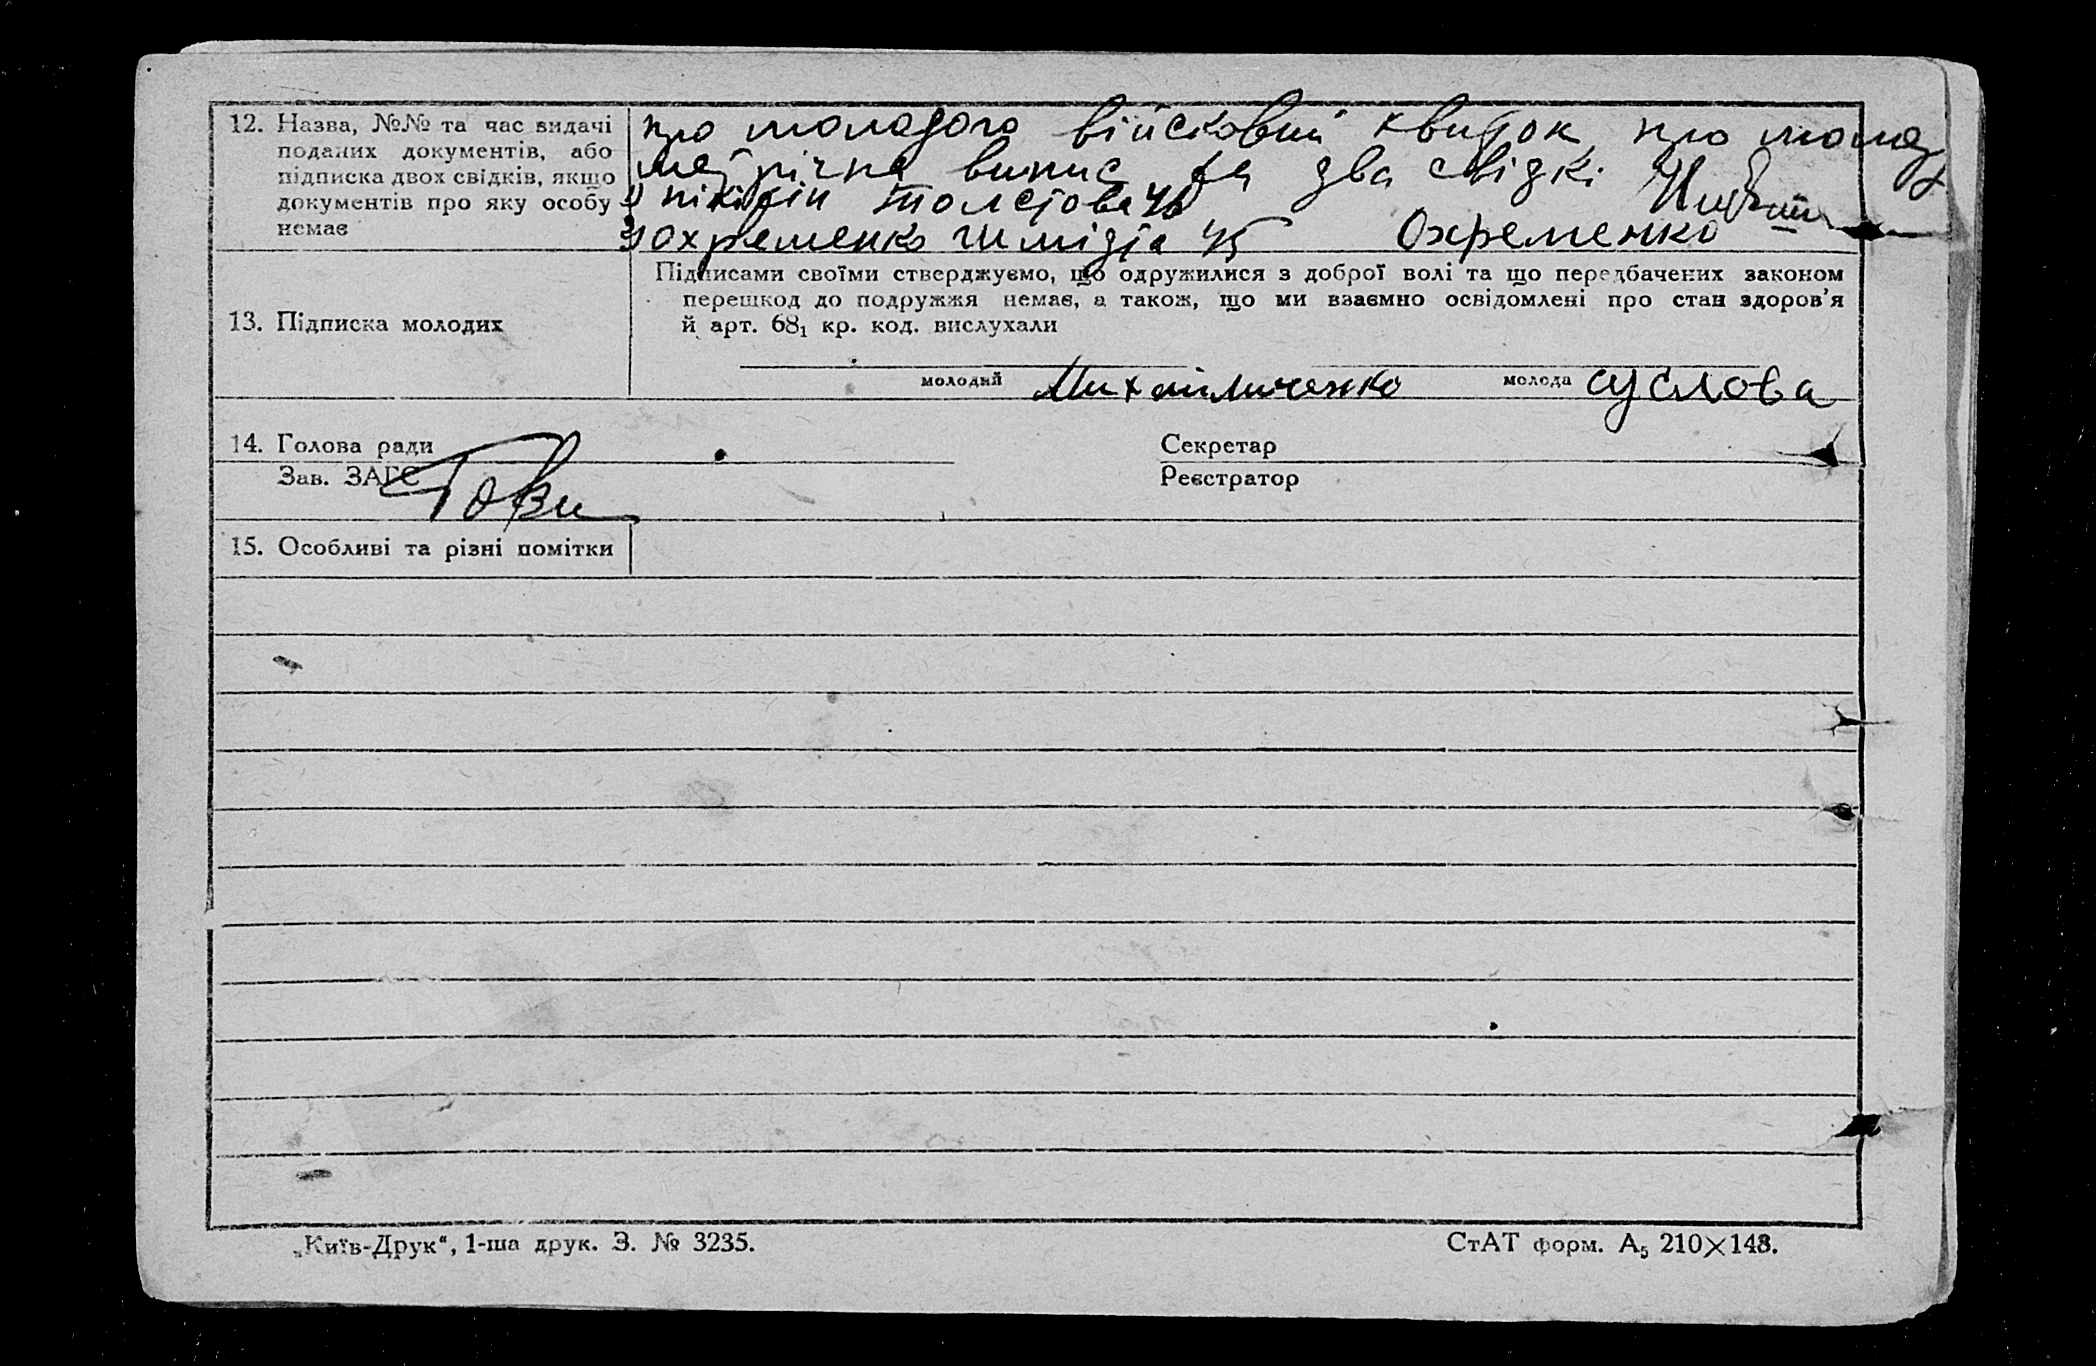 12. Назва, №№ та час видачі
поданих документів, або
підписка двох свідків, якщо
документів про яку особу
немає
про молодого військовий квиток, про молоду
метрічна випис та два свідкі
1) нікітін толстова 46
2) охременко шмідта 45 Охременко
13. Підписка молодих
Підписами своїми стверджуємо, що одружилися з доброї волі та що передбачених законом
перешкод до подружжя немає, а також, що ми взаємно освідомлені про стан здоров'я
й арт. 68₁ кр. код. вислухали
молодий Михайличенко молода суслова
14. Голова ради Секретар
Зав. ЗАГС Реєстратор
15. Особливі та різні помітки
„Київ-Друк“, 1-ша друк. З. № 3235. СтАТ форм. А₅ 210×148.